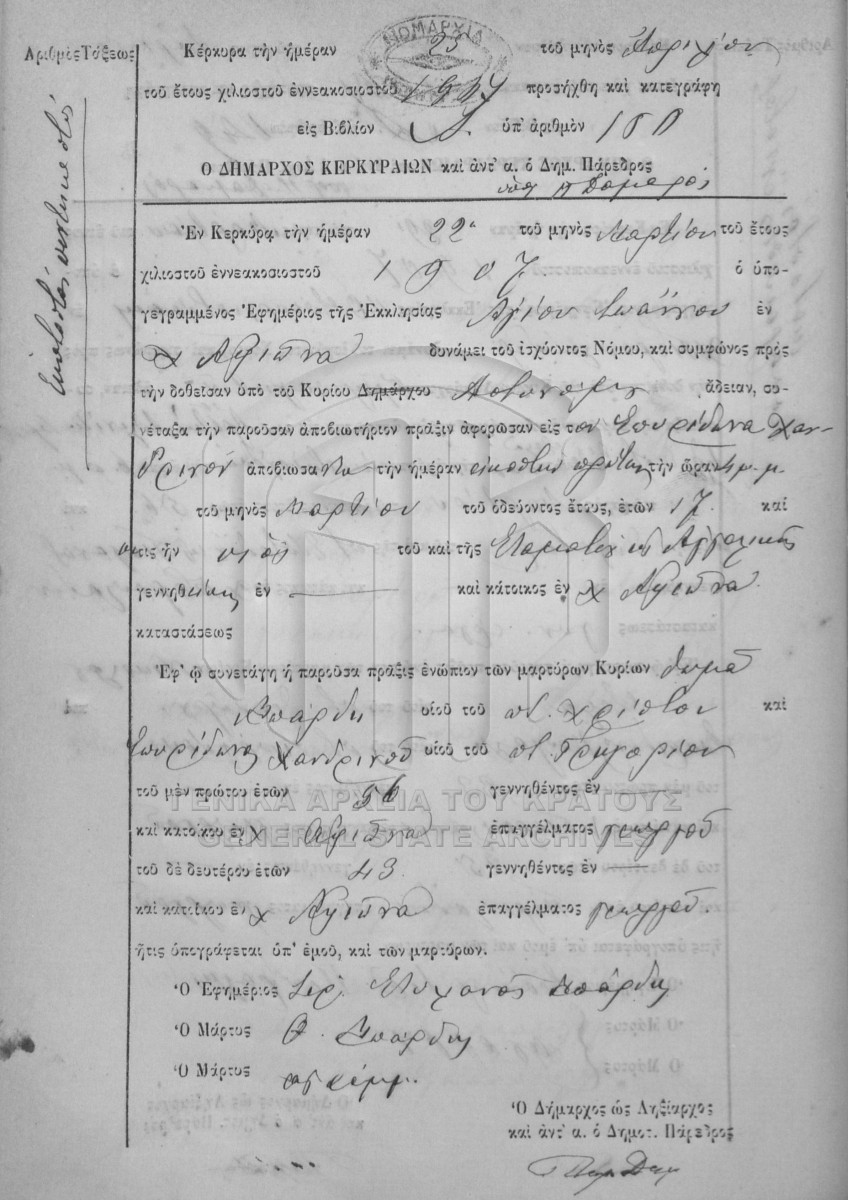 Ἀριθμὸς Τάξεως
ΝΟΜΑΡΧΙΑ
Κέρκυρα τὴν ἡμέραν 25 τοῦ μηνὸς Ἀπριλίου
τοῦ ἔτους χιλιοστοῦ ἐννεακοσιοστοῦ 1907 προσήχθη καὶ κατεγράφη
εἰς Βιβλίον ὑπ' ἀριθμὸν 150
Ο ΔΗΜΑΡΧΟΣ ΚΕΡΚΥΡΑΙΩΝ καὶ ἀντ' α. ὁ Δημ. Πάρεδρος
Ἐν Κερκύρᾳ τὴν ἡμέραν 22α τοῦ μηνὸς Μαρτίου τοῦ ἔτους
χιλιοστοῦ ἐννεακοσιοστοῦ 1907. ὁ ὑπο-
γεγραμμένος Ἐφημέριος τῆς Ἐκκλησίας Ἁγίου Ἰωάννου ἐν
χ Ἀφιῶνα δυνάμει τοῦ ἰσχύοντος Νόμου, καὶ συμφώνως πρὸς
τὴν δοθεῖσαν ὑπὸ τοῦ Κυρίου Δημάρχου Ἀστυνόμου ἄδειαν, συ-
νέταξα τὴν παροῦσαν ἀποβιωτήριον πρᾶξιν ἀφορῶσαν εἰς τον Σπυρίδωνα Χαν-
δρινόν ἀποβιωσαντα τὴν ἡμέραν εἰκοστήν πρώτην τὴν ὥραν μ.μ.
τοῦ μηνὸς Μαρτίου τοῦ ὁδεύοντος ἔτους, ἐτῶν 17 καὶ
τις ἦν υἱός τοῦ καὶ τῆς Σταματίου καὶ Ἀγγελικῆς
γεννηθείσης ἐν — καὶ κάτοικος ἐν χ Ἀφιῶνα
καταστάσεως
Ἐφ' ᾧ συνετάγη ἡ παροῦσα πρᾶξις ἐνώπιον τῶν μαρτύρων Κυρίων Θωμᾶ
Μπάρδη υἱοῦ τοῦ ποτ. Χρίστου καὶ
Σπυρίδωνος Χανδρινοῦ υἱοῦ τοῦ ποτ. Γρηγορίου
τοῦ μὲν πρώτου ἐτῶν 56 γεννηθέντος ἐν —
ΓΕΝΙΚΑ ΑΡΧΕΙΑ ΤΟΥ ΚΡΑΤΟΥΣ
καὶ κατοίκου ἐν χ Ἀφιῶνα ἐπαγγέλματος γεωργοῦ
GENERAL STATE ARCHIVES
τοῦ δὲ δευτέρου ἐτῶν 43 γεννηθέντος ἐν —
καὶ κατοίκου ἐν χ Ἀφιῶνα ἐπαγγέλματος γεωργοῦ.
ἥτις ὑπογράφεται ὑπ' ἐμοῦ, καὶ τῶν μαρτύρων.
Ὁ Ἐφημέριος Ἱερ. Στυλιανός Μπάρδης
Ὁ Μάρτυς Θ. Μπάρδης
Ὁ Μάρτυς
Ὁ Δήμαρχος ὡς Ληξίαρχος
καὶ ἀντ' α. ὁ Δημοτ. Πάρεδρος